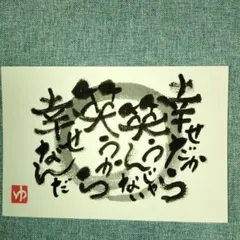 幸せだから
笑うんじゃない
笑うから
幸せなんだ
ゆ